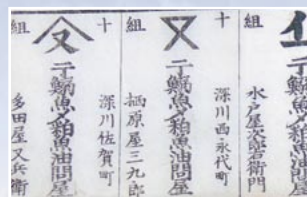 干鰯魚〆粕魚油問屋
組 水戸屋次郎右衛門
十 深川西永代町
又
干鰯魚〆粕魚油問屋
組 栖原屋三九郎
十 深川佐賀町
又
干鰯魚〆粕魚油問屋
組 多田屋又兵衛